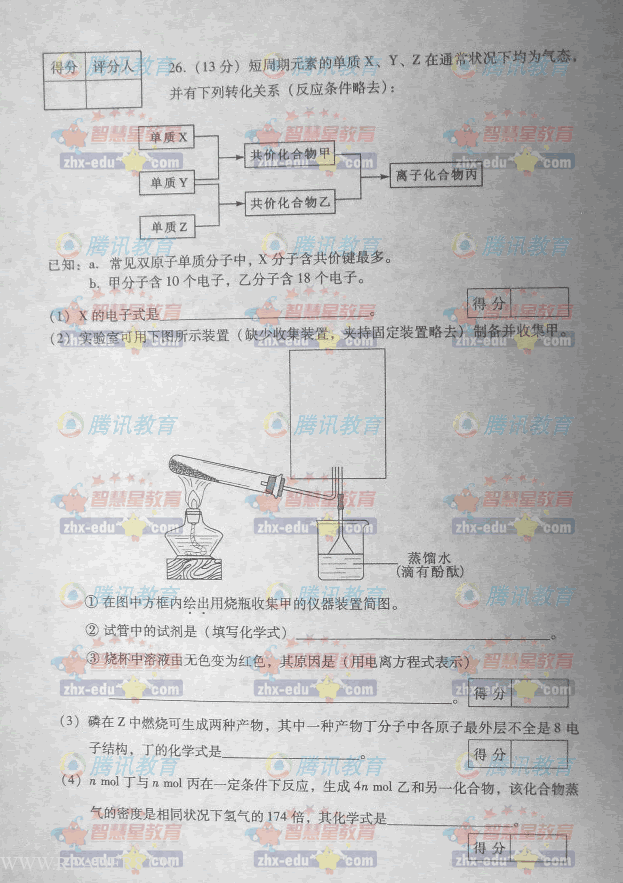 得分 评分人
26.（13 分）短周期元素的单质 X、Y、Z 在通常状况下均为气态，
并有下列转化关系（反应条件略去）：
单质 X
单质 Y
单质 Z
共价化合物甲
共价化合物乙
离子化合物丙
已知：a. 常见双原子单质分子中，X 分子含共价键最多。
b. 甲分子含 10 个电子，乙分子含 18 个电子。
得 分
（1）X 的电子式是 。
（2）实验室可用下图所示装置（缺少收集装置，夹持固定装置略去）制备并收集甲。
蒸馏水
(滴有酚酞)
① 在图中方框内绘出用烧瓶收集甲的仪器装置简图。
② 试管中的试剂是（填写化学式） 。
③ 烧杯中溶液由无色变为红色，其原因是（用电离方程式表示）
。
得 分
（3）磷在 Z 中燃烧可生成两种产物，其中一种产物丁分子中各原子最外层不全是 8 电
子结构，丁的化学式是 。
得 分
（4）n mol 丁与 n mol 丙在一定条件下反应，生成 4n mol 乙和另一化合物，该化合物蒸
气的密度是相同状况下氢气的 174 倍，其化学式是 。
得 分
腾讯教育
智慧星教育
zhx-edu.com